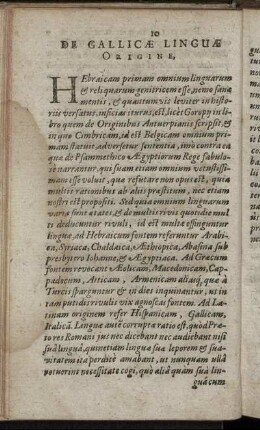 10
DE GALLICÆ LINGUÆ
ORIGINE,
HEbraicam primam omnium linguarum
& reliquarum genitricem esse, nemo sanæ
mentis, & quantumvis leviter in histo
riis versatus inficias iturus est, licèt Goropius in li
bro quem de Originibus Antwerpianis scripsit, &
in quo Cimbricam, id est Belgicam omnium pri
mam statuit, adversetur sententia, imò contra ea
quæ de Psammeticho Ægyptiorum Rege fabulo
sè narrantur, quis suam etiam omnium vetustissi
mam esse voluit, quæ refutare non opus est, quia
multis rationibus ab aliis præstitum, nec etiam
nostri est propositi. Sed quia omnium linguarum
variæ sunt ætates, & de multis rivis quotidie mul
ti deducuntur rivuli, id est multæ effinguntur
linguæ, ad Hebraicum fontem referuntur Arabi
ca, Syriaca, Chaldaica, Æthiopica, Abasina sub
presbytero Iohanne, & Ægyptiaca. Ad Græcum
fontem revocant Æolicam, Macedonicam, Cap
padocum, Atticam, Armenicam aliasq, quæ à
Turcis sparguntur & in dies inquinantur, ut in
tam putidis rivulis vix agnoscas fontem. Ad La
tinam originem refer Hispanicam, Gallicam,
Italicā. Linguæ autē corrupta ratio est, quòd Præ
tores Romani jus nec dicebant nec audiebant nisi
suâ linguâ, quinetiam linguæ suæ leporem & sua
vitatem ita perditè amabant, ut nunquam ullâ
potuerint necessitate cogi, quò aliâ quàm suâ lin
guâ cum